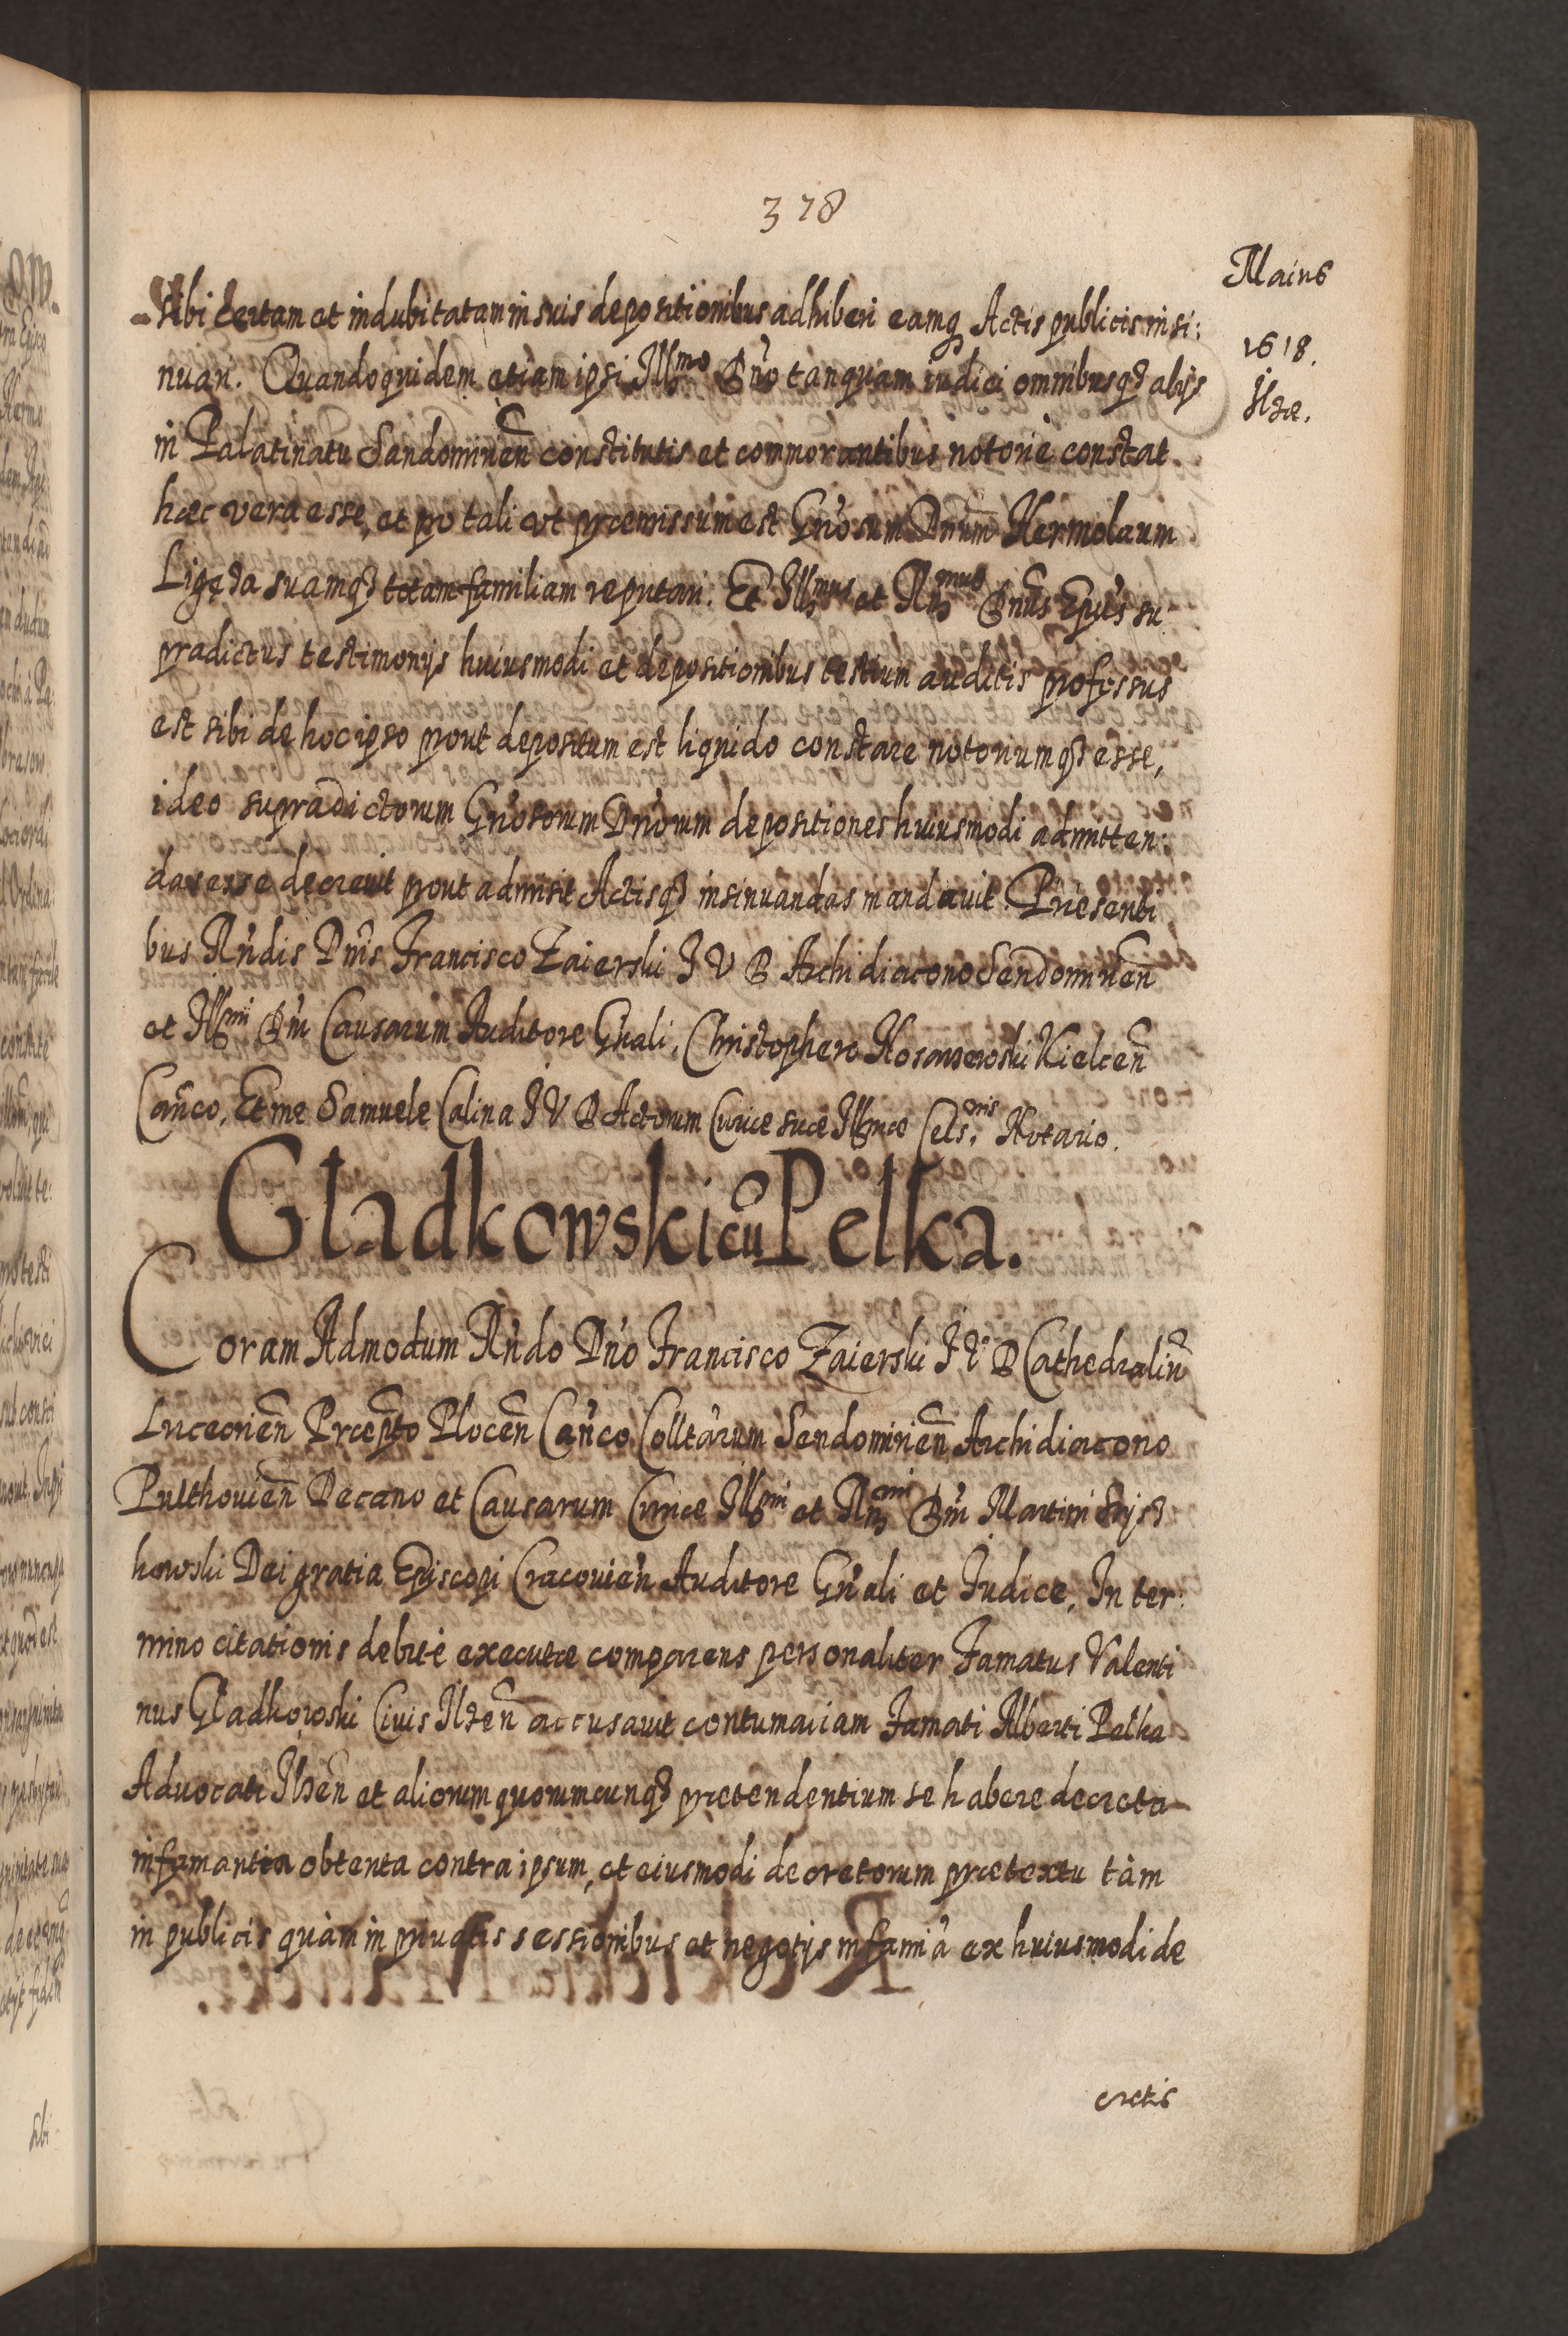 378
Maius
1618.
Ilzæ.
sibi certam et indubitatam in suis depositionibus adhiberi eamq Actis publicis insi:
nuari. Quandoquidem etiam ipsi Illmo Dno tanquam iudici omnibusq alijs
in Palatinatu Sandomirien constitutis et commorantibus notorie constat
hæc vera esse, et pro tali ut præmissum est Gnosum Dnum Hermolaum
Ligęza suamq totam familiam reputari. Et Illmus et Rmus Dnus Epus su
pradictus testimonijs huiusmodi et depositionibus testium auditis professus
est sibi de hoc ipso prout depositum est liquido constare notoriumq esse,
ideo supradictorum Gnosorum Dnorum depositiones huiusmodi admitten:
das esse decrevit prout admisit Actisq insinuandas mandavit. Præsenti
bus Rndis Dnis Francisco Zaierski I V D Archidiacono Sendomirien
et Illmi Dni Causarum Auditore Gnali, Christophero Kielcen
Canco, Et me Samuele Calina I V D Actorum Curiæ suæ Illmæ Cels: onis Notario.
Gladkowski cu Pelka.
Coram Admodum Rndo Dno Francisco Zaierski I V D Cathedralium
Luceorien Præpto Plocen Canco Colltarum Sendomirien Archidiacono
Pulthovien Decano et Causarum Curiæ Illmi et Rmi Dni Martini Szysz
kowski Dei gratia Episcopi Cracovien Auditore Gnali et Iudice, In ter:
mino citationis debite executæ comparens personaliter Famatus Valenti
nus Gladkowski Civis Ilzen accusavit contumaciam Famati Alberti Pelka
Advocati Ilzen et aliorum quorumcunq prætendentium se habere decreta
infamantia obtenta contra ipsum, et eiusmodi decretorum prætextu tam
in publicis quam in privatis sessionibus et negotijs infamia ex huiusmodi de
cretis